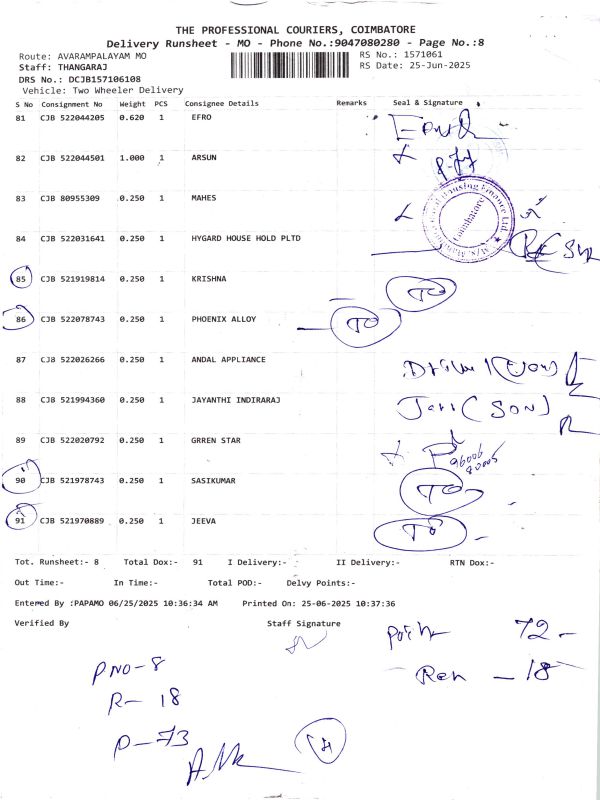 THE PROFESSIONAL COURIERS, COIMBATORE
Delivery Runsheet - MO - Phone No.:9047080280 - Page No.:8
Route: AVARAMPALAYAM MO RS No.: 1571061
Staff: THANGARAJ RS Date: 25-Jun-2025
DRS No.: DCJB157106108
Vehicle: Two Wheeler Delivery
S No Consignment No Weight PCS Consignee Details Remarks Seal & Signature
81 CJB 522044205 0.620 1 EFRO
82 CJB 522044501 1.000 1 ARSUN
83 CJB 80955309 0.250 1 MAHES
Housing Finance Ltd.
Coimbatore
84 CJB 522031641 0.250 1 HYGARD HOUSE HOLD PLTD
85 CJB 521919814 0.250 1 KRISHNA TO
86 CJB 522078743 0.250 1 PHOENIX ALLOY TO
87 CJB 522026266 0.250 1 ANDAL APPLIANCE
88 CJB 521994360 0.250 1 JAYANTHI INDIRARAJ (SON)
89 CJB 522020792 0.250 1 GRREN STAR
90 CJB 521978743 0.250 1 SASIKUMAR TO
91 CJB 521970889 0.250 1 JEEVA TO
Tot. Runsheet:- 8 Total Dox:- 91 I Delivery:- II Delivery:- RTN Dox:-
Out Time:- In Time:- Total POD:- Delvy Points:-
Entered By :PAPAMO 06/25/2025 10:36:34 AM Printed On: 25-06-2025 10:37:36
Verified By Staff Signature
72 -
- 18
PNO-8
R- 18
P-73